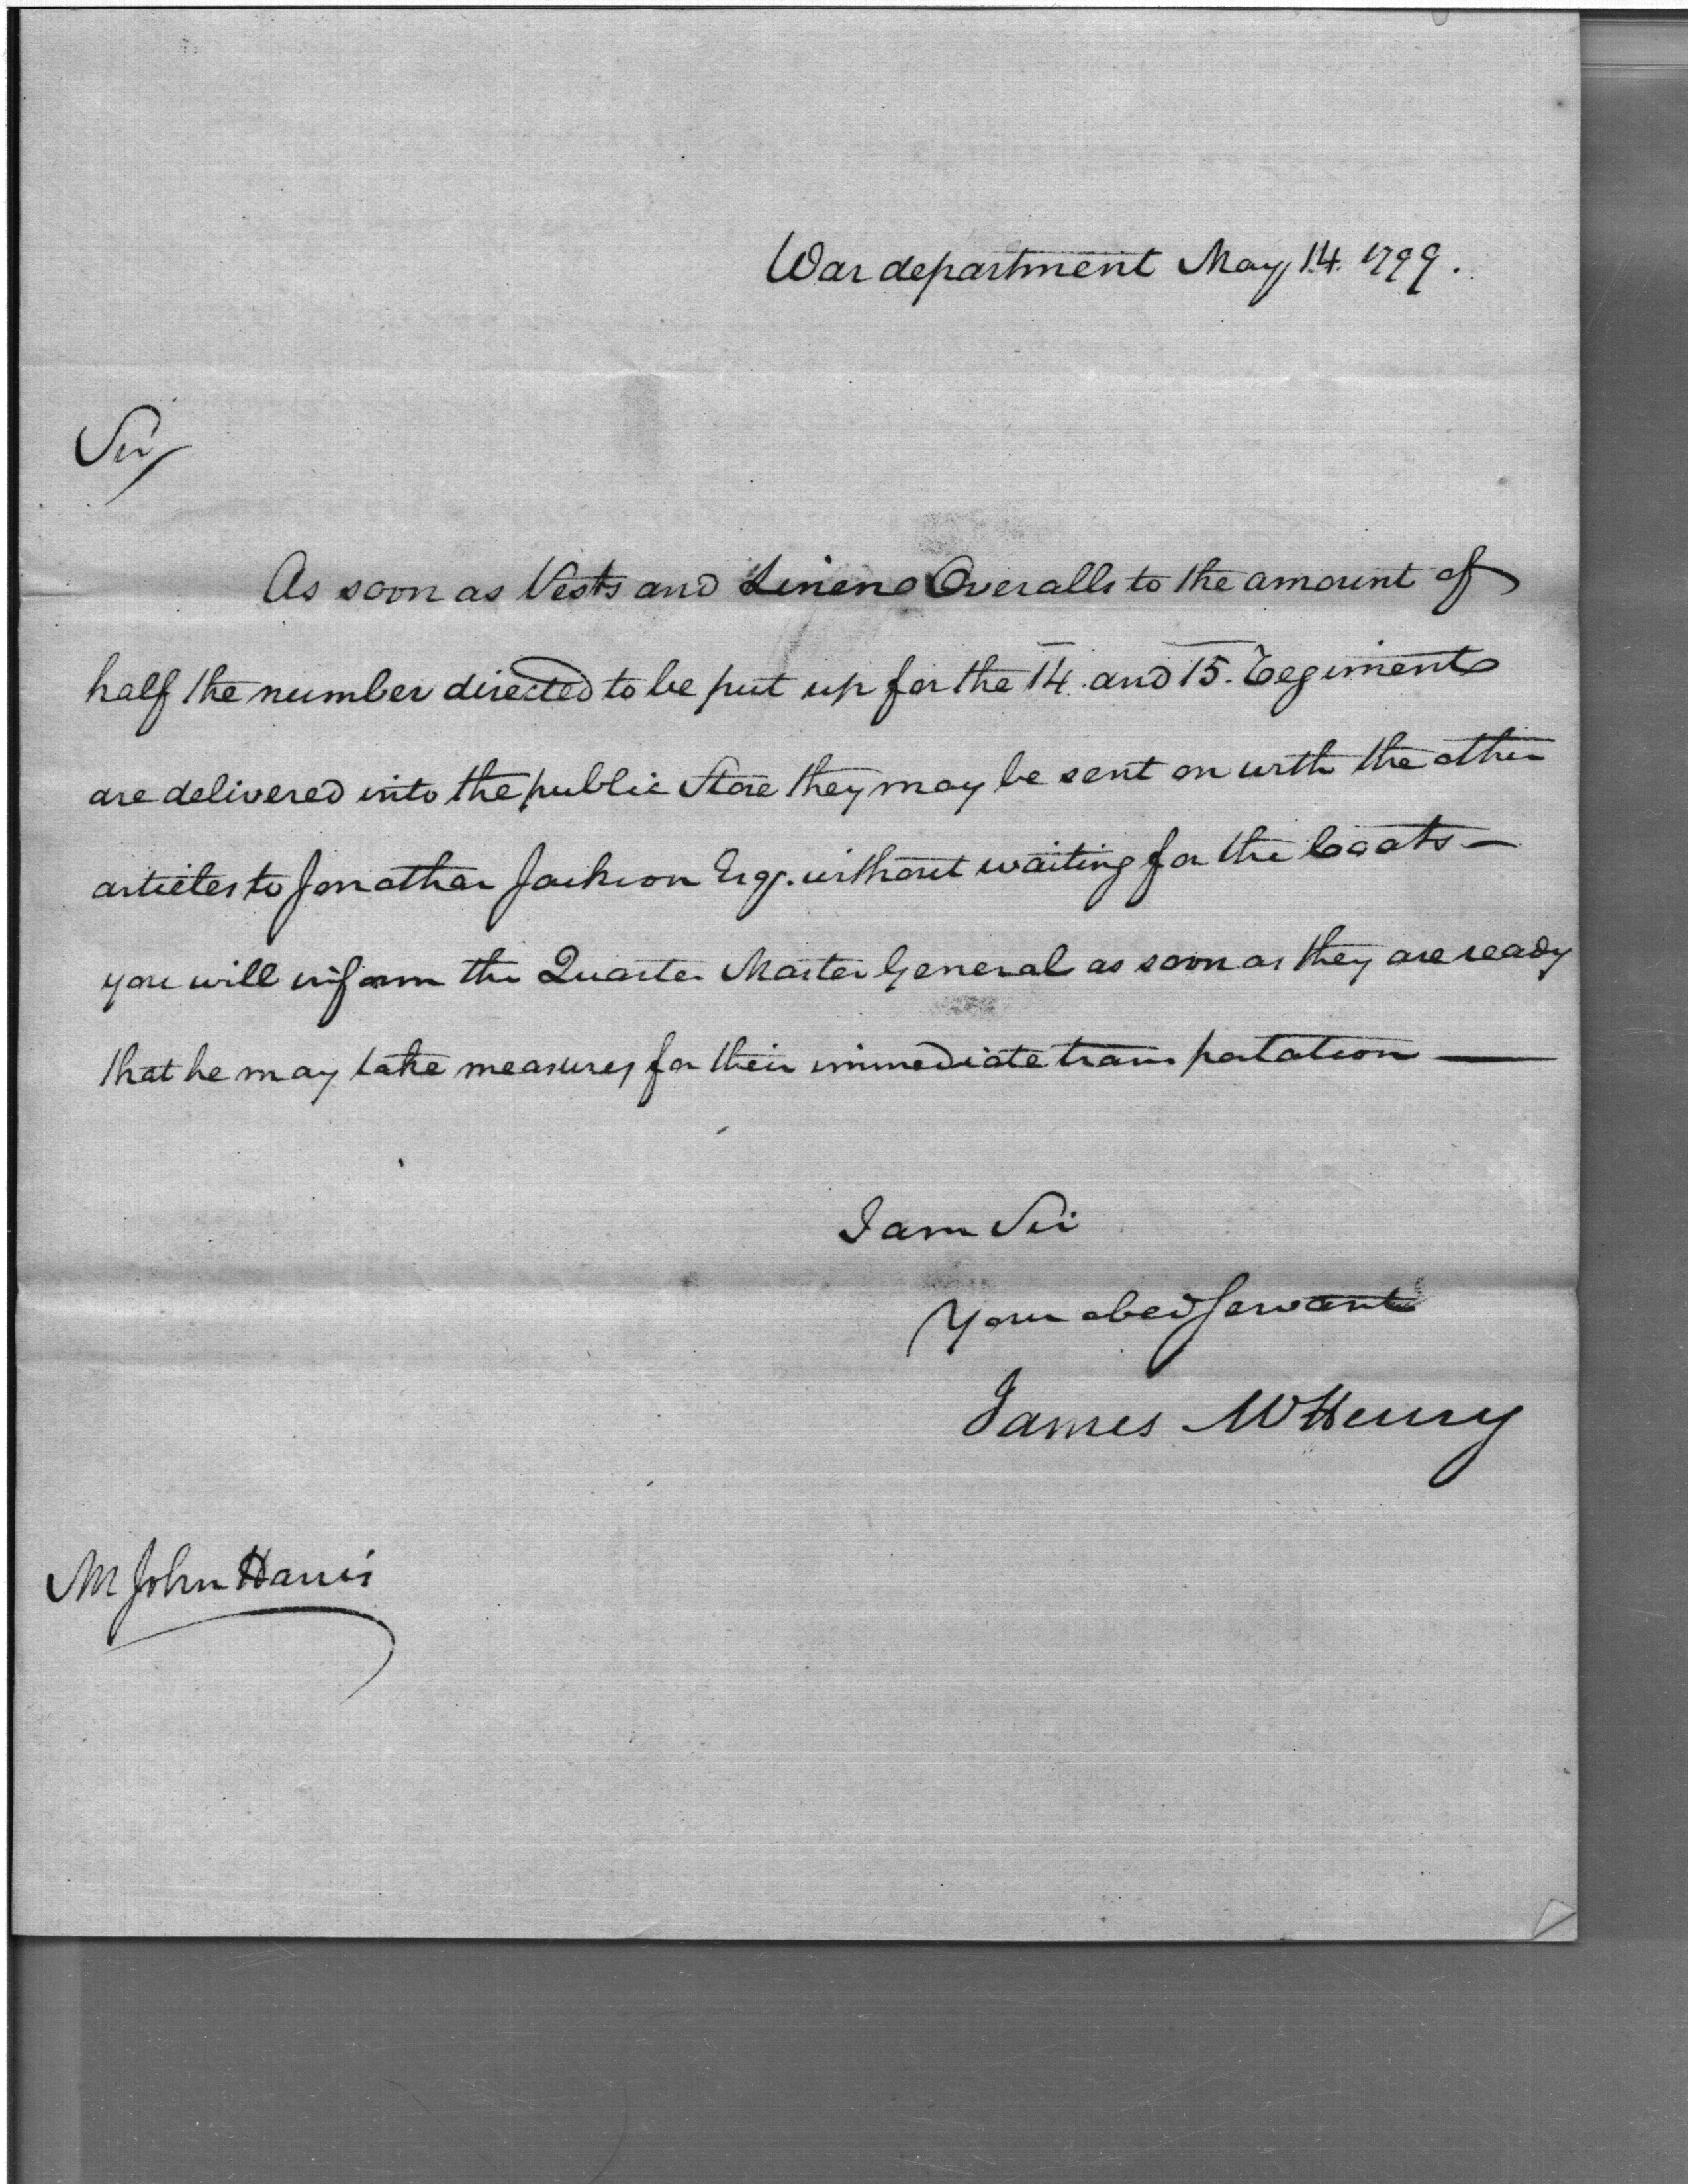 War department May 14. 1799.
Sir,
As soon as Vests and Linen Overalls to the amount of
half the number directed to be put up for the 14. and 15. Regiments
are delivered into the public Store they may be sent on with the other
articles to Jonathan Jackson Esqr. without waiting for the Coats —
you will inform the Quarter Master General as soon as they are ready
that he may take measures for their immediate transportation —
I am Sir
Your obed Servant
James McHenry
Mr John Harris